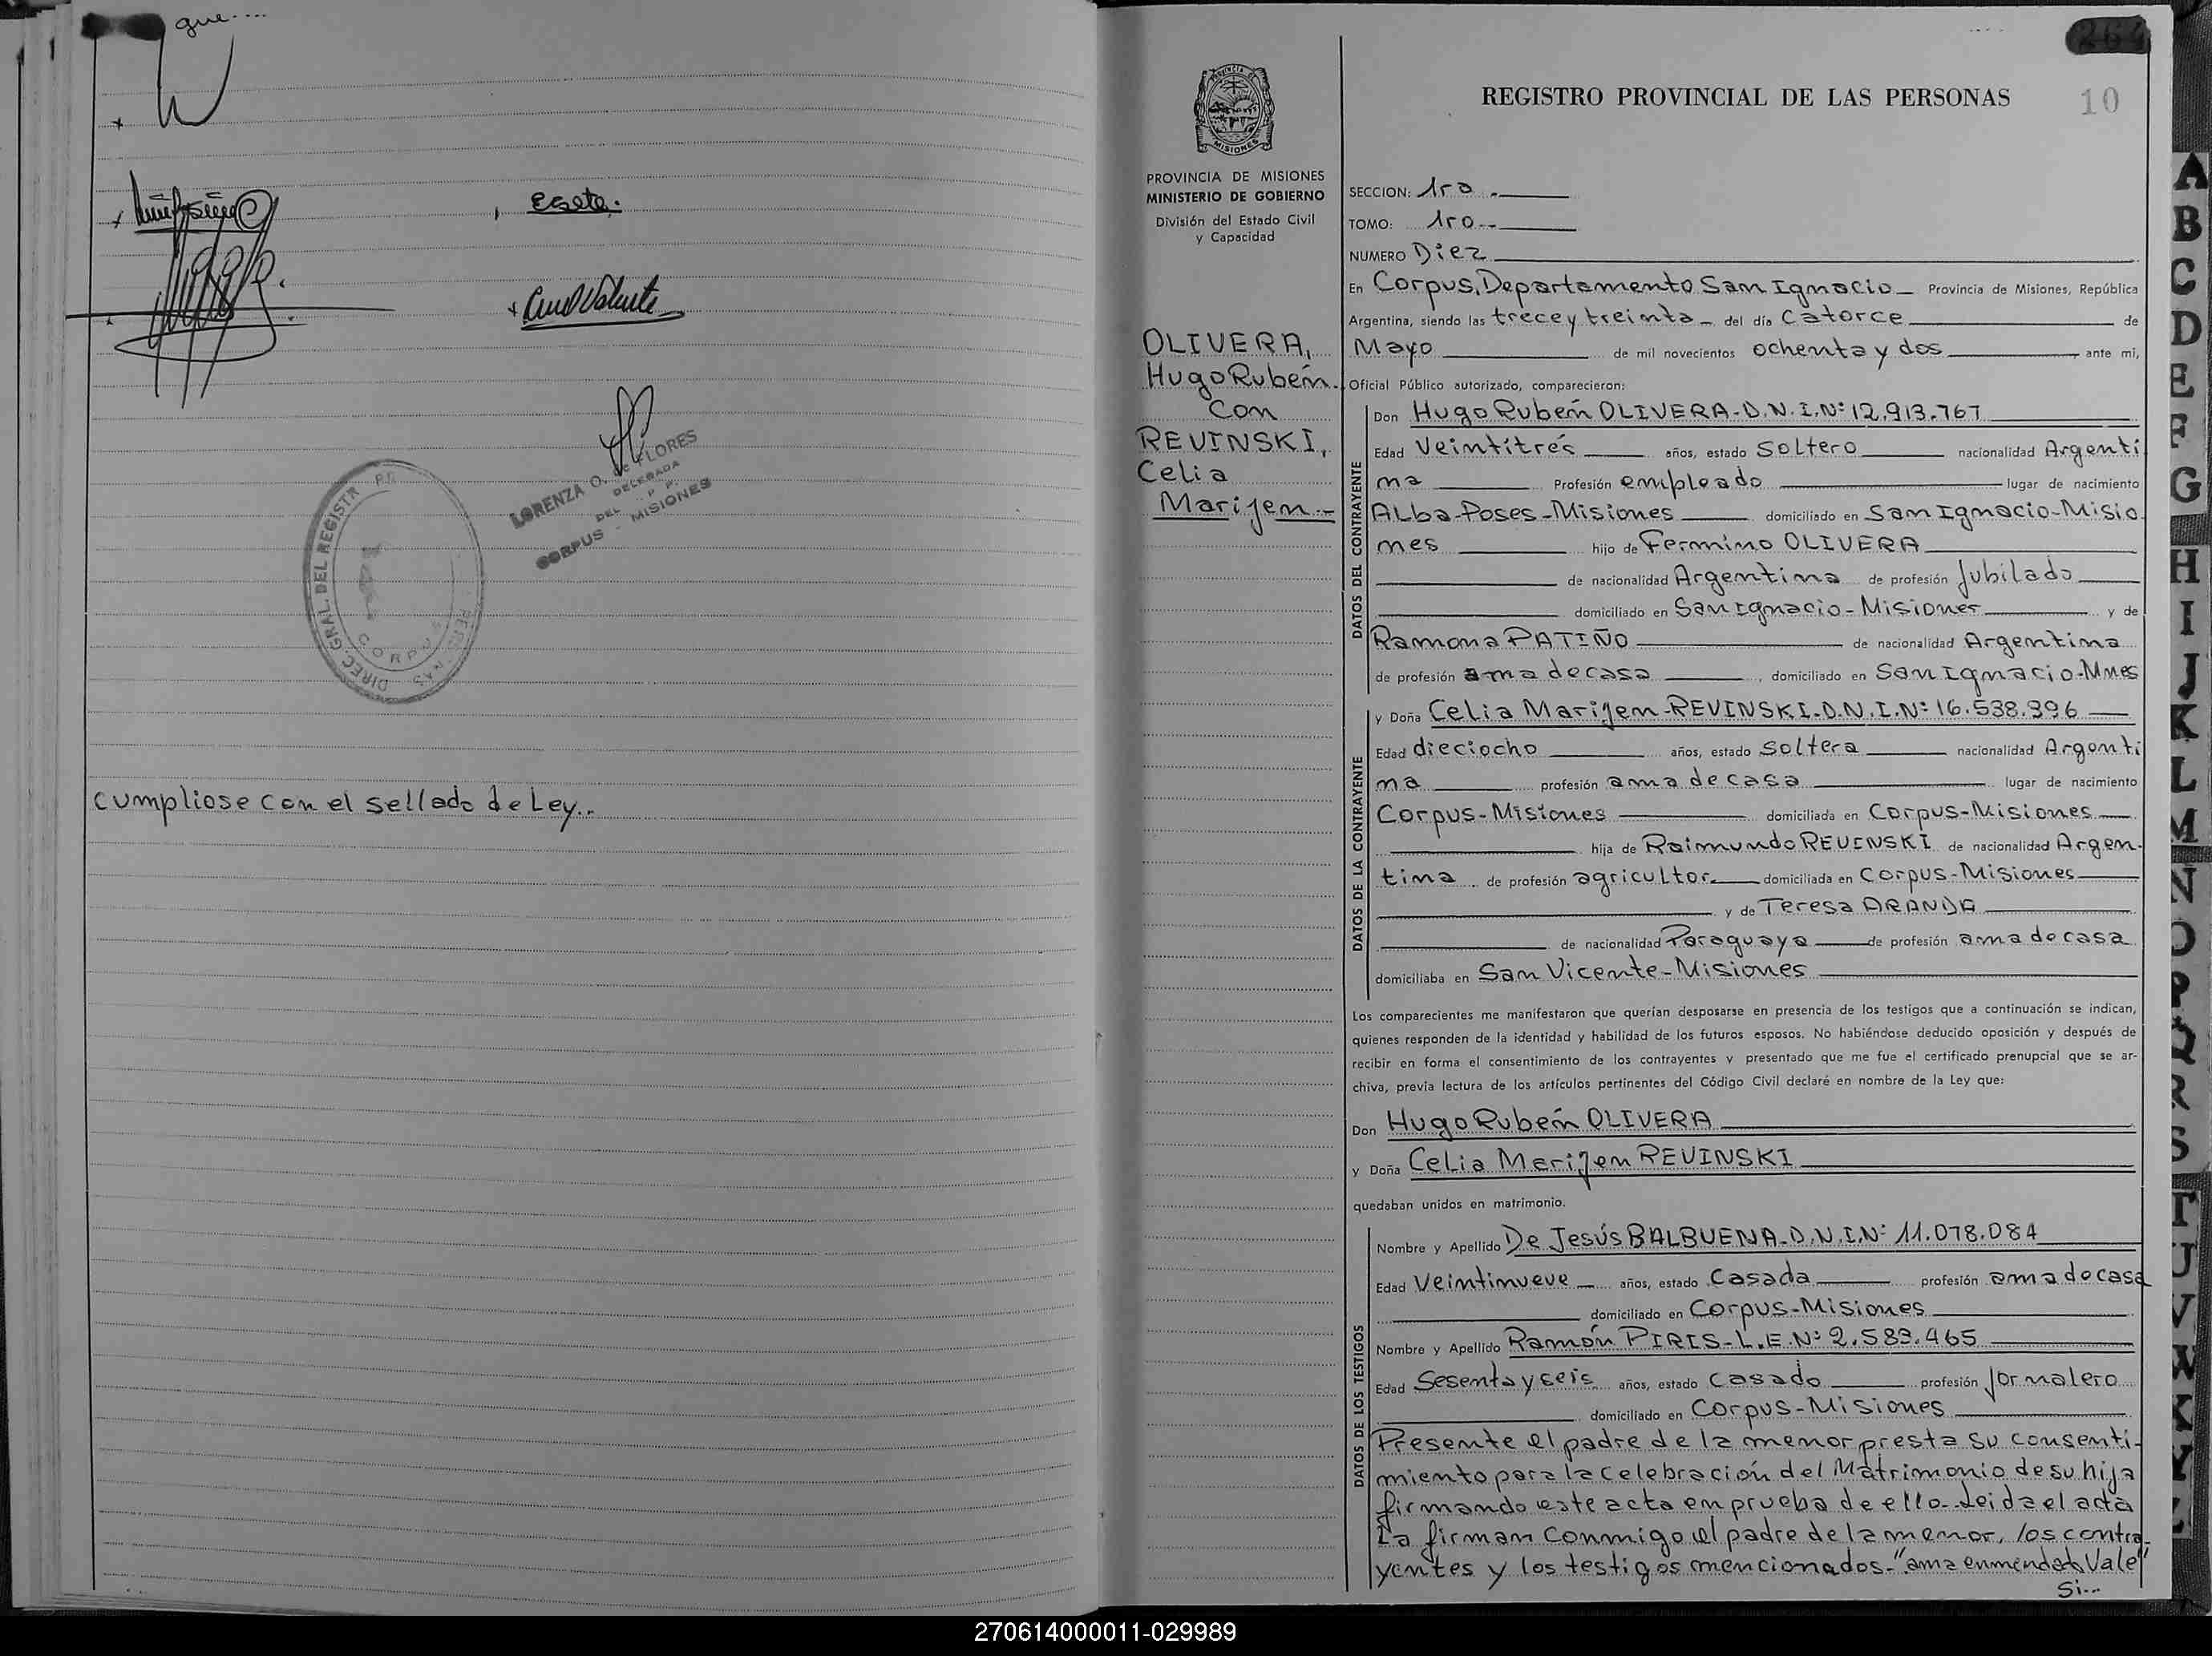 que....
Esete.
LORENZA O. de FLORES
DELEGADA
DEL R. P. P.
CORPUS - MISIONES
DIREC. GRAL. DEL REGISTR
CORPUS
cumpliose con el sellado de Ley..
PROVINCIA DE
MISIONES
PROVINCIA DE MISIONES
MINISTERIO DE GOBIERNO
División del Estado Civil
y Capacidad
OLIVERA,
Hugo Rubén
con
REVINSKI,
Celia
Marijen.-
REGISTRO PROVINCIAL DE LAS PERSONAS 10
SECCION: 1ra.-
TOMO: 1ro--
NUMERO Diez
En Corpus, Departamento San Ignacio - Provincia de Misiones, República
Argentina, siendo las trece y treinta - del día Catorce de
Mayo de mil novecientos ochenta y dos ante mi,
Oficial Público autorizado, comparecieron:
DATOS DEL CONTRAYENTE
Don Hugo Rubén OLIVERA-D.N.I.Nº 12.913.767
Edad Veintitrés años, estado Soltero nacionalidad Argenti
na Profesión empleado lugar de nacimiento
ALba-Poses-Misiones domiciliado en San Ignacio-Misio
nes hijo de Fermino OLIVERA
de nacionalidad Argentina de profesión Jubilado
domiciliado en San Ignacio-Misiones y de
Ramona PATIÑO de nacionalidad Argentina
de profesión ama de casa, domiciliado en San Ignacio-Mnes
DATOS DE LA CONTRAYENTE
y Doña Celia Marijen-REVINSKI-D.N.I.Nº 16.538.396
Edad dieciocho años, estado Soltera nacionalidad Argenti
na profesión ama de casa lugar de nacimiento
Corpus-Misiones domiciliada en Corpus-Misiones
hija de Raimundo REVINSKI de nacionalidad Argen-
tina, de profesión agricultor domiciliada en Corpus-Misiones
y de Teresa ARANDA
de nacionalidad Paraguaya de profesión ama de casa
domiciliaba en San Vicente-Misiones
Los comparecientes me manifestaron que querían desposarse en presencia de los testigos que a continuación se indican,
quienes responden de la identidad y habilidad de los futuros esposos. No habiéndose deducido oposición y después de
recibir en forma el consentimiento de los contrayentes y presentado que me fue el certificado prenupcial que se ar-
chiva, previa lectura de los artículos pertinentes del Código Civil declaré en nombre de la Ley que:
Don Hugo Rubén OLIVERA
y Doña Celia Marijen REVINSKI
quedaban unidos en matrimonio.
DATOS DE LOS TESTIGOS
Nombre y Apellido De Jesús BALBUENA-D.N.I.Nº 11.078.084
Edad Veintinueve años, estado Casada profesión ama de casa
domiciliado en Corpus-Misiones
Nombre y Apellido Ramón PIRIS-L.E.Nº 2.583.465
Edad Sesenta y seis años, estado Casado profesión jornalero
domiciliado en Corpus-Misiones
Presente el padre de la menor presta su consenti-
miento para la celebración del Matrimonio de su hija
firmando este acta en prueba de ello. Leida el acta
la firman conmigo el padre de la menor, los contra-
yentes y los testigos mencionados.-"ama enmendado Vale"
Si...
A
B
C
D
E
F
G
H
I
J
K
L
M
N
O
P
Q
R
S
T
U
V
W
X
Y
Z
270614000011-029989